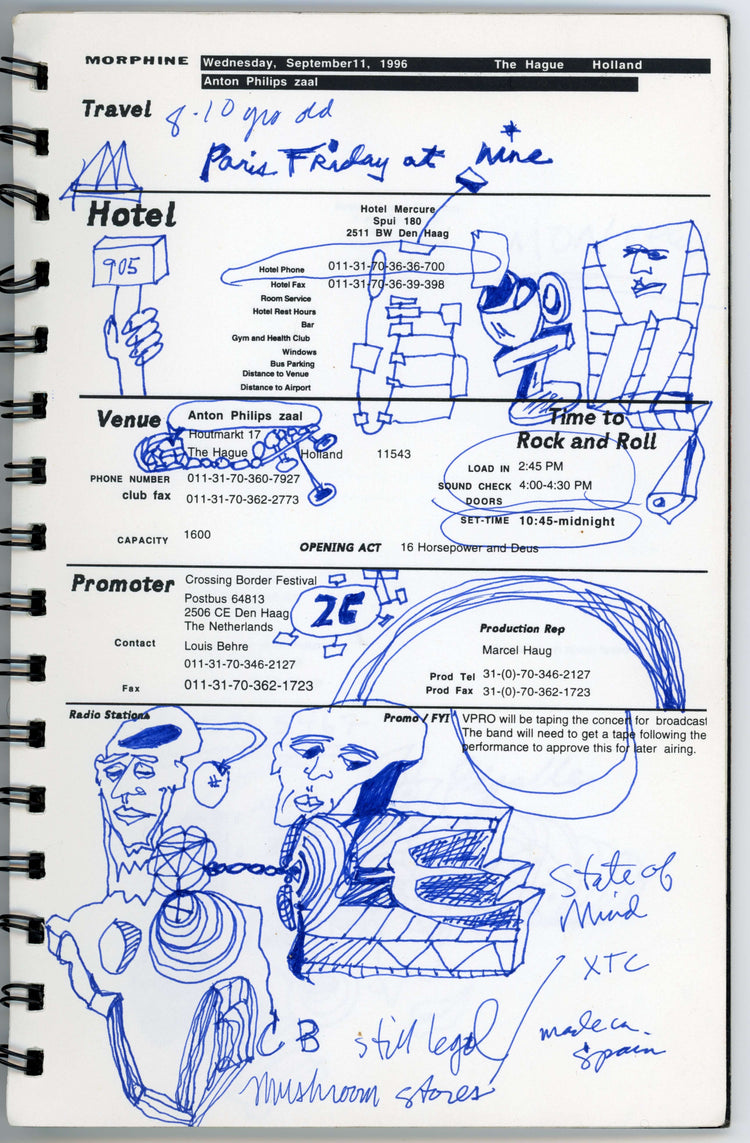 MORPHINE Wednesday, September11, 1996 The Hague Holland
Anton Philips zaal
Travel 8-10 yrs old
Paris Friday at nine
Hotel
Hotel Mercure
Spui 180
2511 BW Den Haag
905
Hotel Phone 011-31-70-36-36-700
Hotel Fax 011-31-70-36-39-398
Room Service
Hotel Rest Hours
Bar
Gym and Health Club
Windows
Bus Parking
Distance to Venue
Distance to Airport
Venue Anton Philips zaal
Houtmarkt 17
The Hague Holland 11543
PHONE NUMBER 011-31-70-360-7927
club fax 011-31-70-362-2773
CAPACITY 1600
Time to
Rock and Roll
LOAD IN 2:45 PM
SOUND CHECK 4:00-4:30 PM
DOORS
SET-TIME 10:45-midnight
OPENING ACT 16 Horsepower and Deus
Promoter Crossing Border Festival
Postbus 64813
2506 CE Den Haag
The Netherlands
2E
Contact Louis Behre
011-31-70-346-2127
Fax 011-31-70-362-1723
Production Rep
Marcel Haug
Prod Tel 31-(0)-70-346-2127
Prod Fax 31-(0)-70-362-1723
Radio Stations
Promo / FYI VPRO will be taping the concert for broadcast
The band will need to get a tape following the
performance to approve this for later airing.
#
State of
Mind
XTC
made in
Spain
CB still legal
Mushroom stores